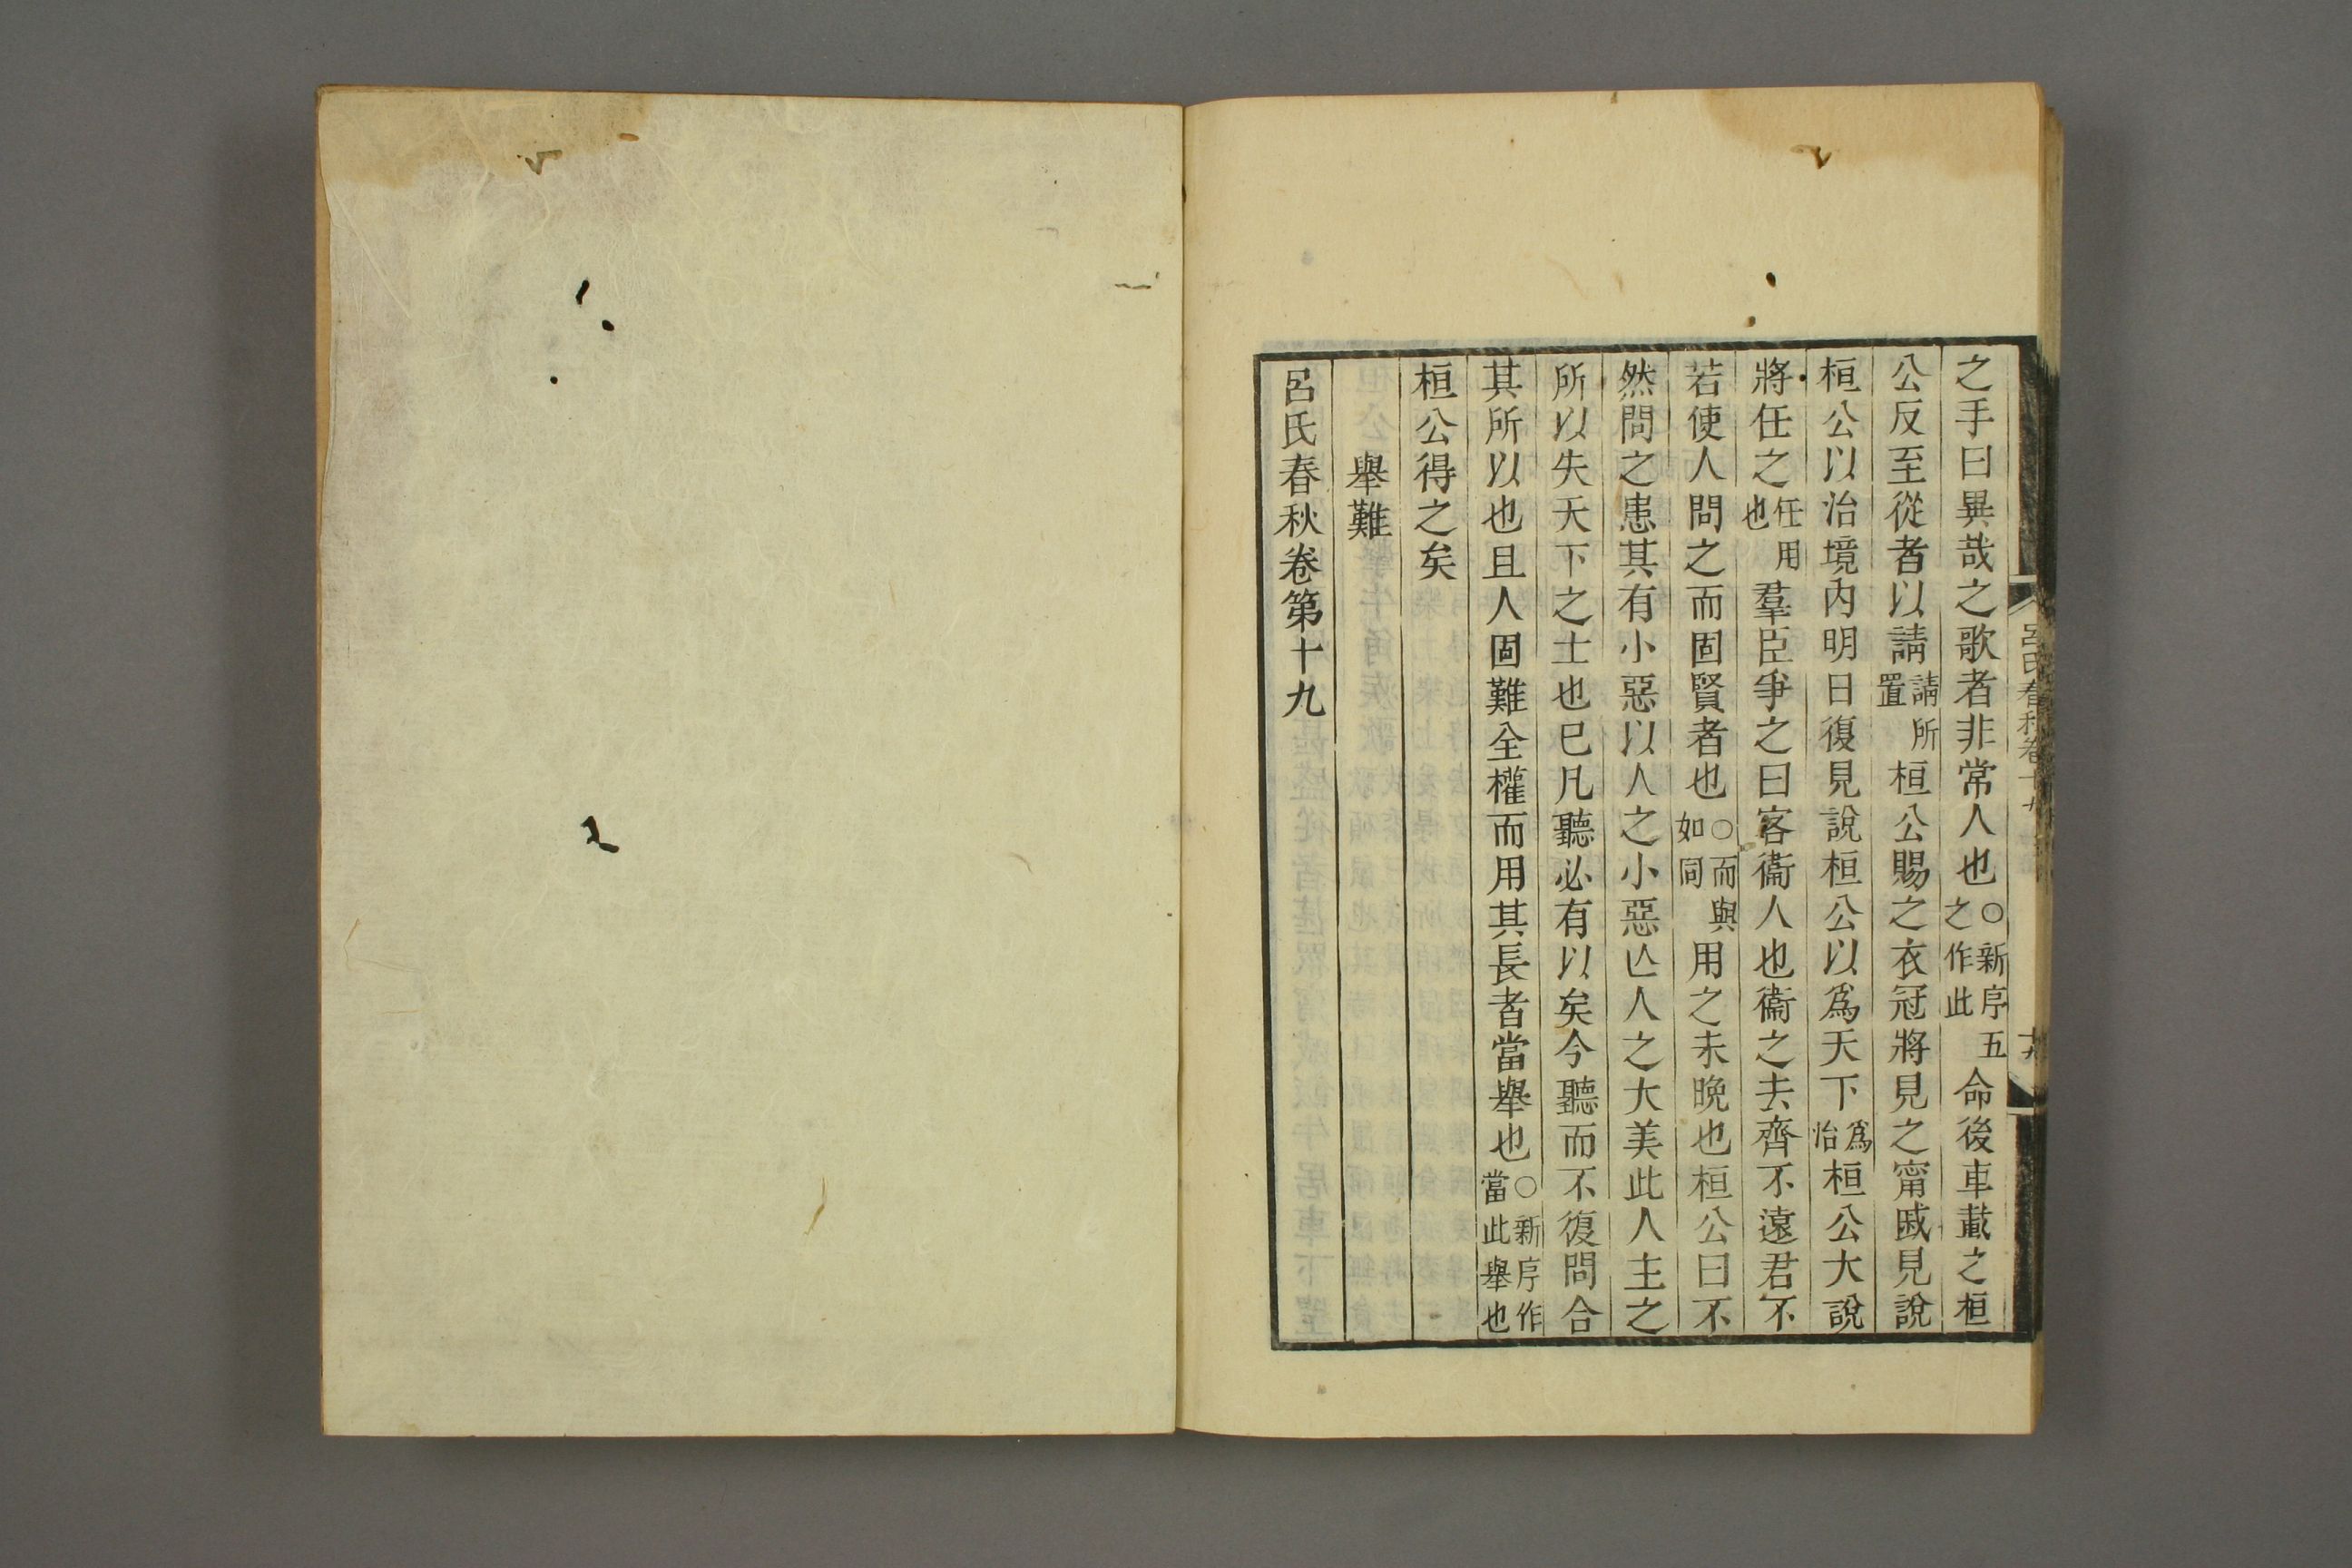 之手曰異哉之歌者非常人也○新序五之作此命後車載之桓
公反至從者以請請所置桓公賜之衣冠將見之甯戚見說
桓公以治境內明日復見說桓公以爲天下爲怡桓公大說
將任之任用也羣臣爭之曰客衞人也衞之去齊不遠君不
若使人問之而固賢者也○而與如同用之未晚也桓公曰不
然問之患其有小惡以人之小惡亾人之大美此人主之
所以失天下之士也已凡聽必有以矣今聽而不復問合
其所以也且人固難全權而用其長者當舉也○新序作當此舉也
桓公得之矣
舉難
呂氏春秋卷第十九